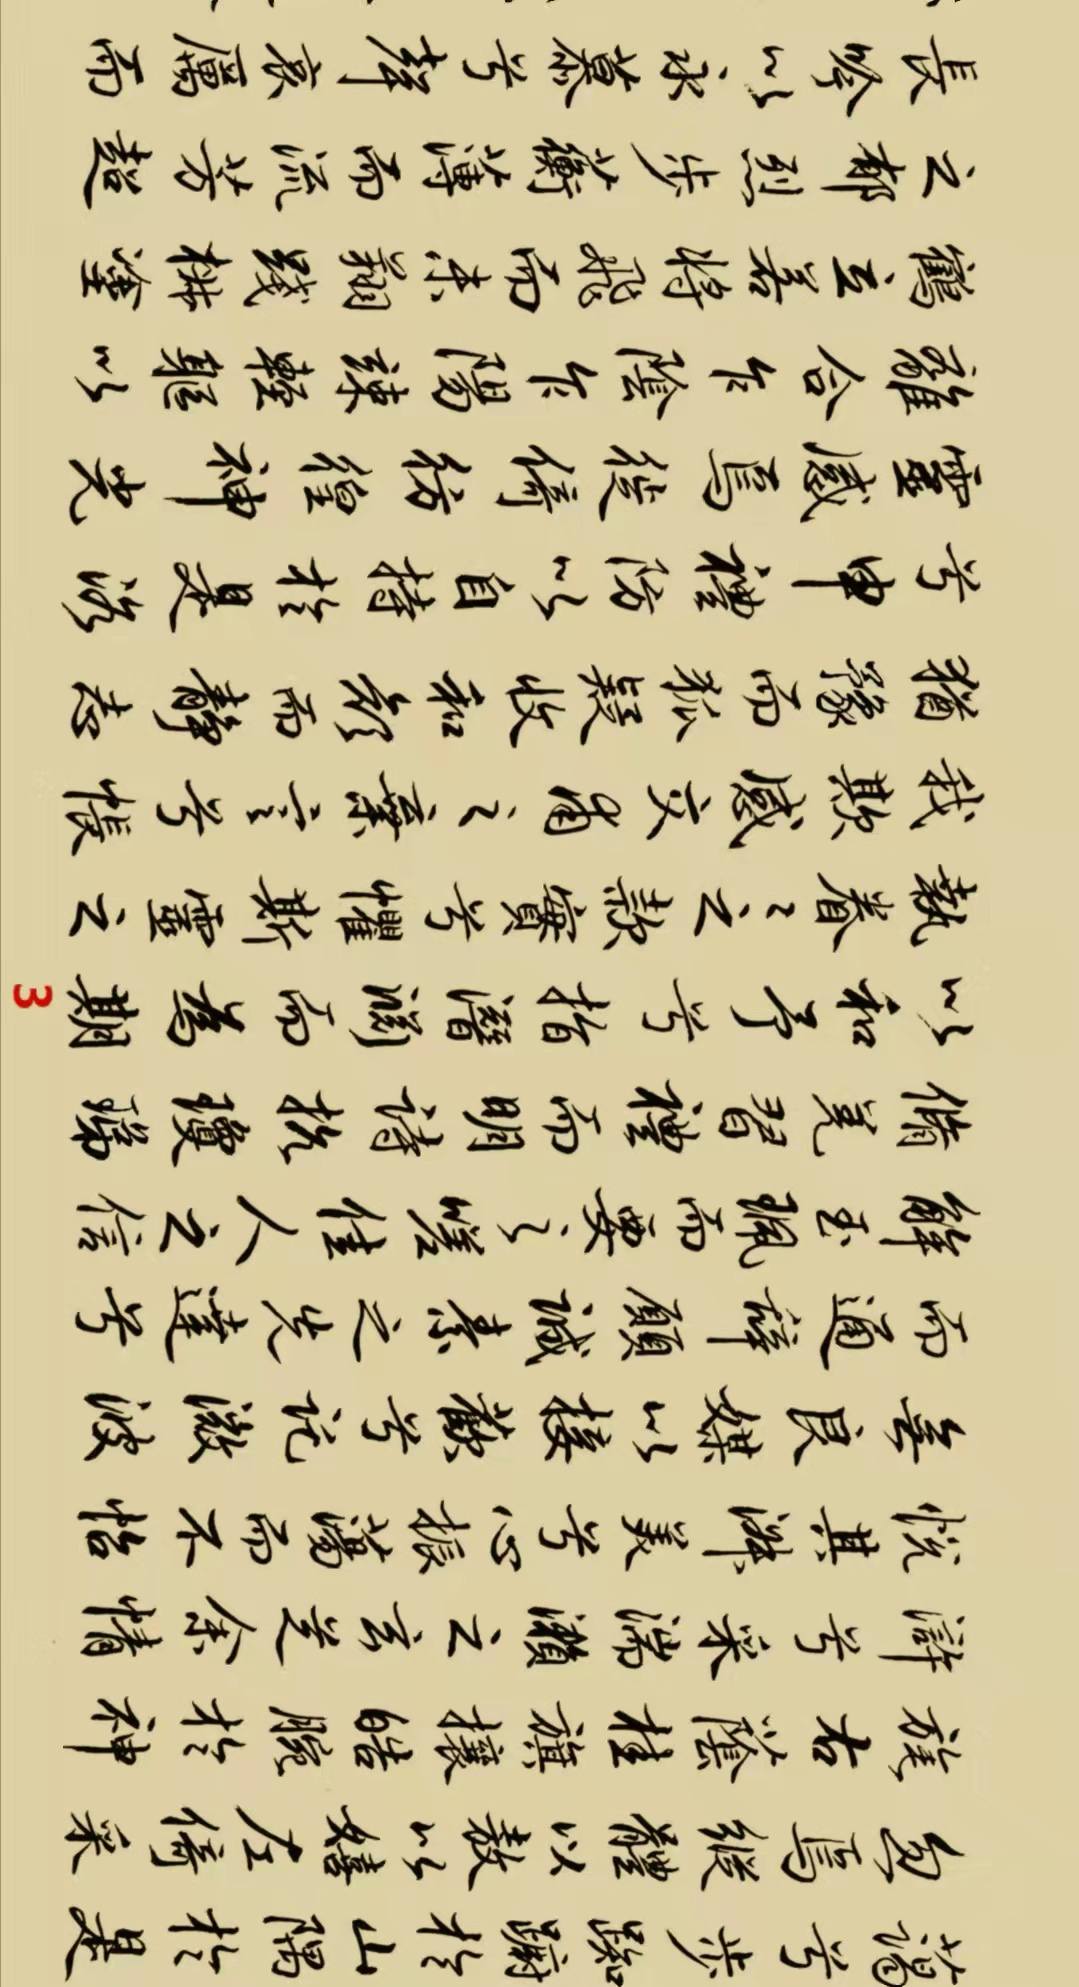 藹兮步踟躕於山隅於是
忽焉縱體以敖以嬉左倚采
旄右蔭桂旗攘皓腕於神
滸兮采湍瀨之玄芝余情
悅其淑美兮心振蕩而不怡
無良媒以接歡兮託微波
而通辭願誠素之先達兮
解玉珮而要之嗟佳人之信
脩羌習禮而明詩抗瓊珶
以和予兮指潛淵而為期
執眷々之款實兮懼斯靈之
我欺感交甫之棄言兮悵
猶豫而狐疑收和顏而靜志
兮申禮防以自持於是洛
靈感焉徙倚彷徨神光
離合乍陰乍陽竦輕軀以
鶴立若將飛而未翔踐椒塗
之郁烈步蘅薄而流芳超
長吟以永慕兮聲哀厲而
3